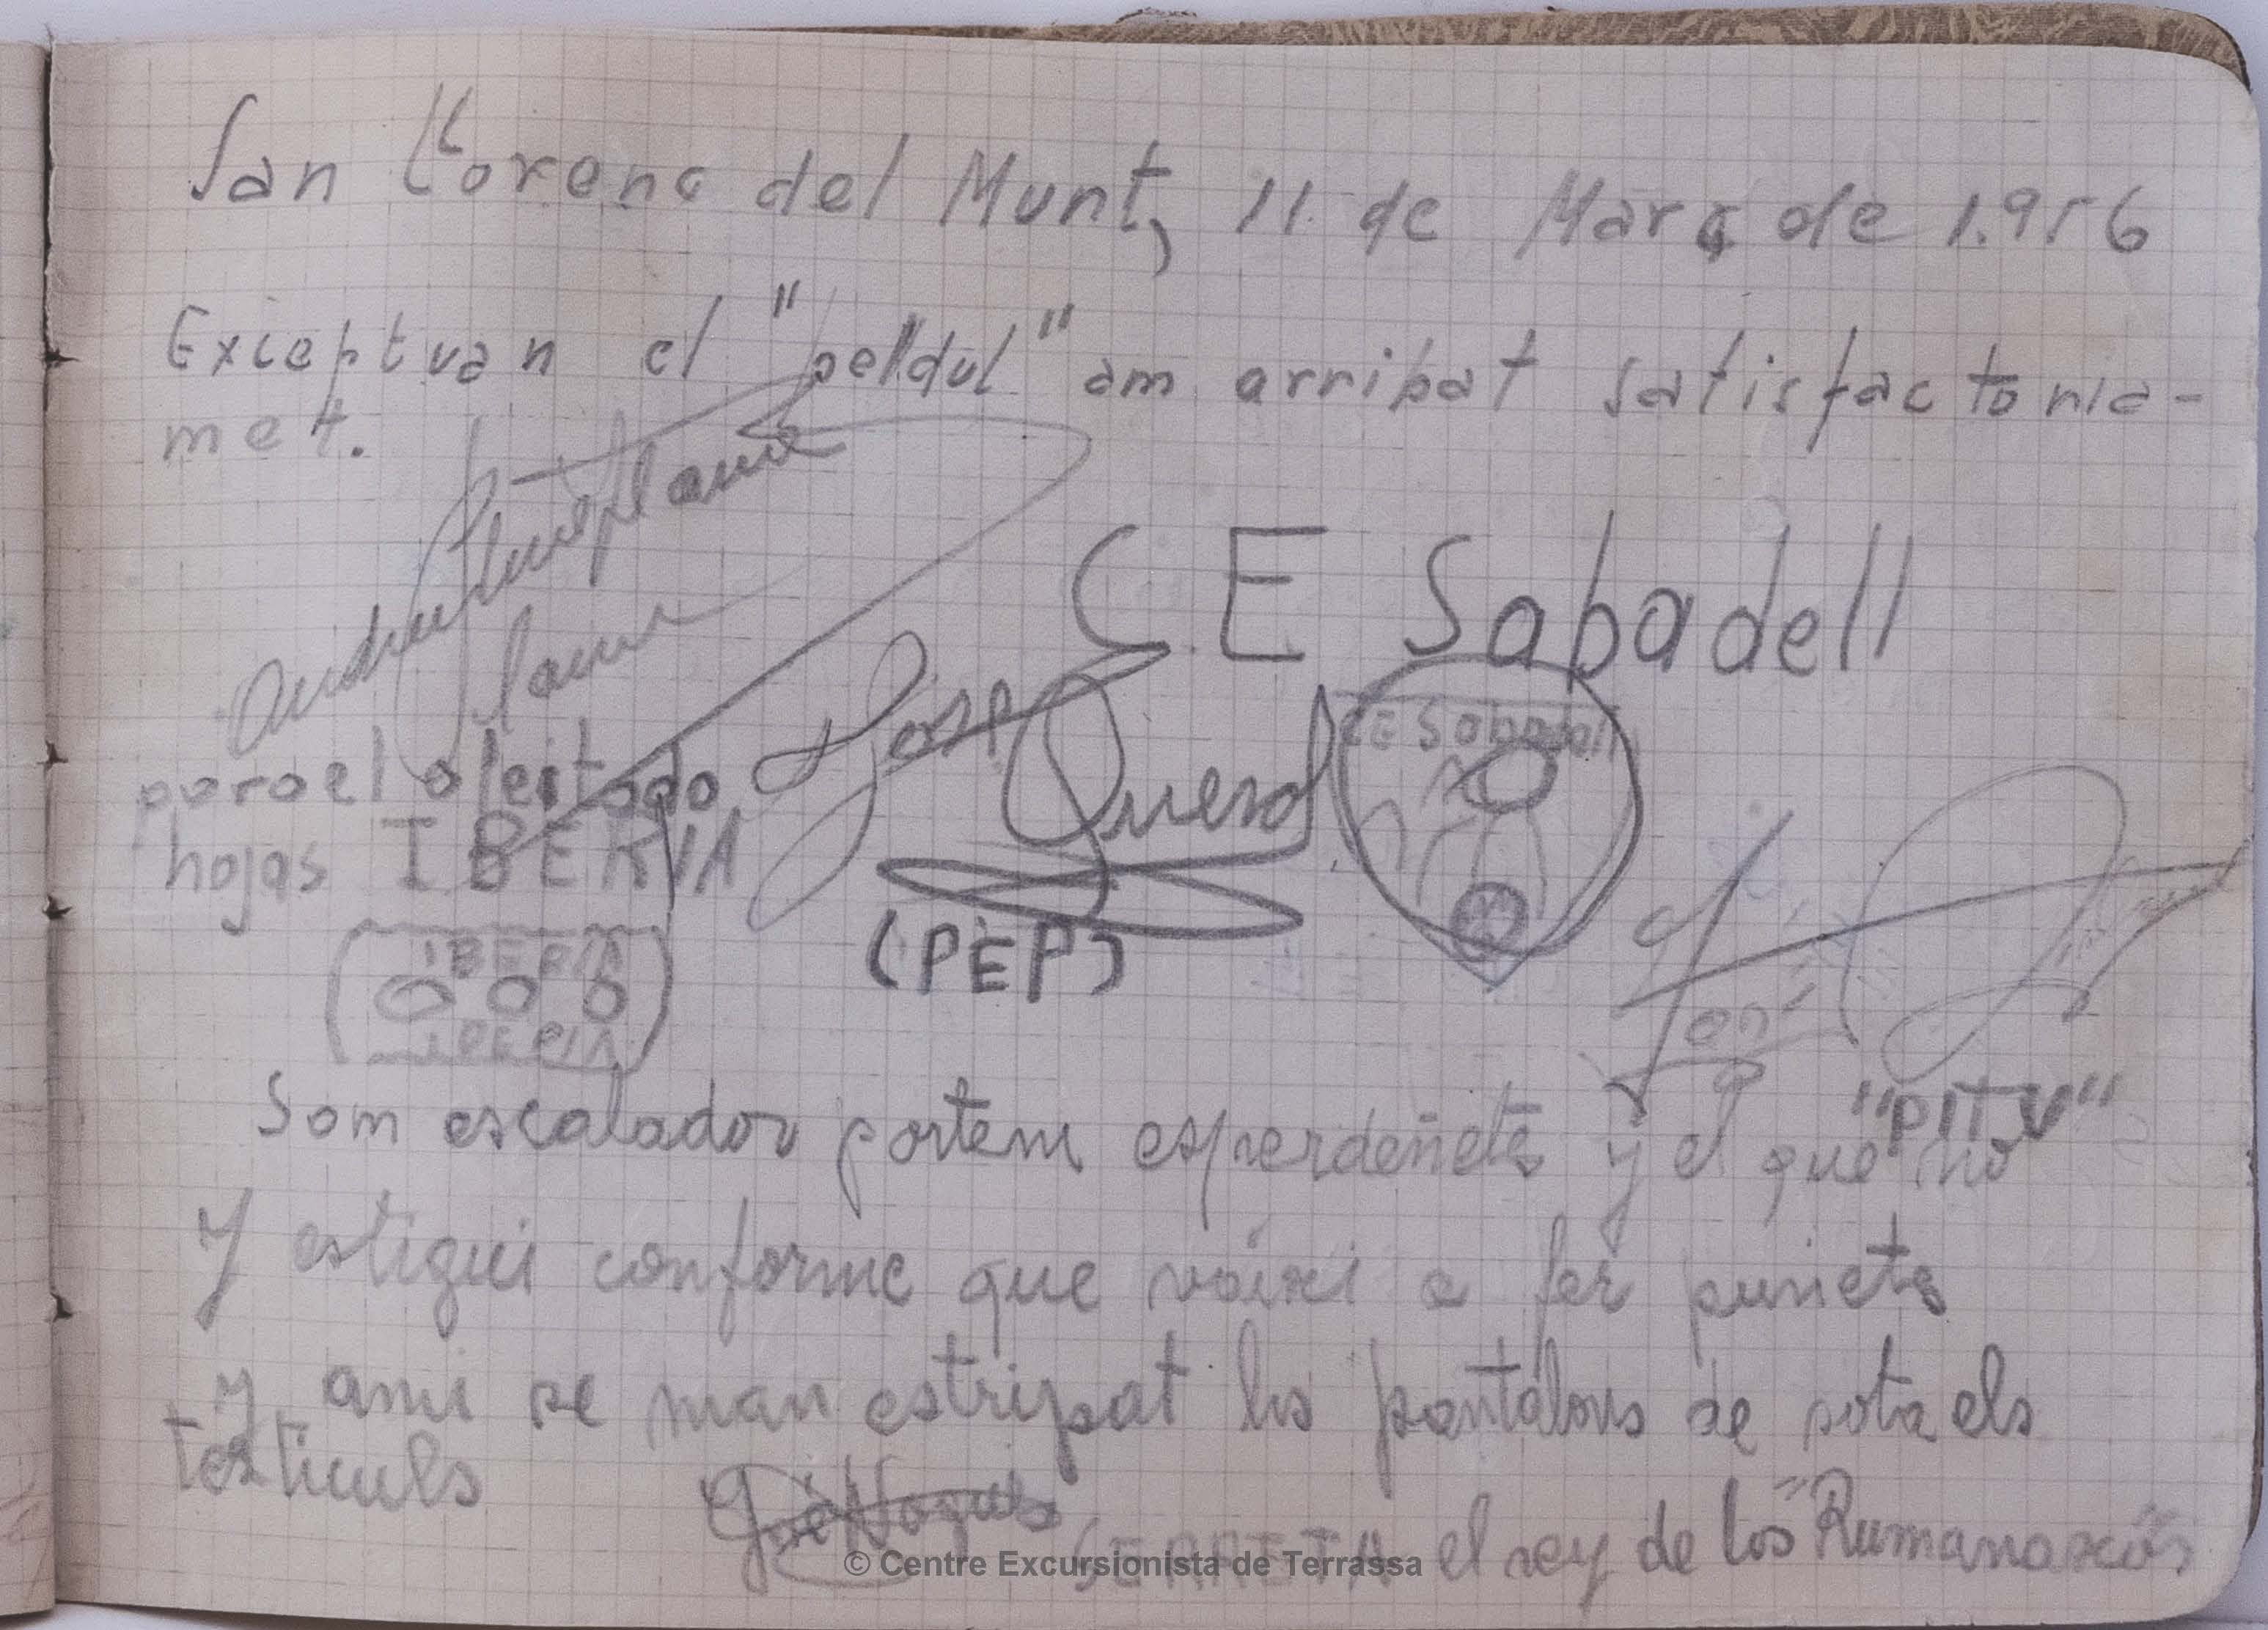 San Llorenç del Munt, 11 de Març de 1.956
Exceptuan el "peldul" am arribat satisfactoria-
met.
Andreu
Jaume
C. E Sabadell
CE Sabadell
para el afeitado
hojas IBERIA
IBERIA
IBERIA
Josep Querol
(PEP)
"PITU"
Som escalador portem esperdeñets y el que no
Y estigui conforme que vaixi a fer puñets
y ami se man estripat los pantalons de sota els
testiculs
Nogués
SERRETA el rey de los "Rumanaxos"
© Centre Excursionista de Terrassa